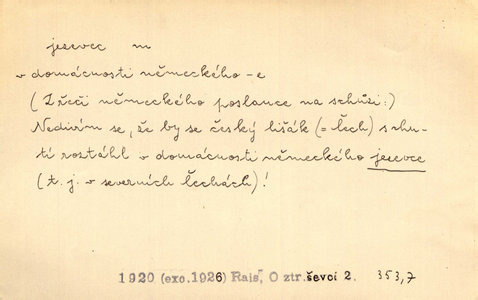 jezevec m
v domácnosti německého -e
(Z řeči německého poslance na schůzi:)
Nedivím se, že by se český lišák (o Čech) s chu-
tí roztáhl v domácnosti německého jezevce
(t. j. v severních Čechách)!
1920 (exc. 1926) Rais, O ztr. ševci 2. 353,7